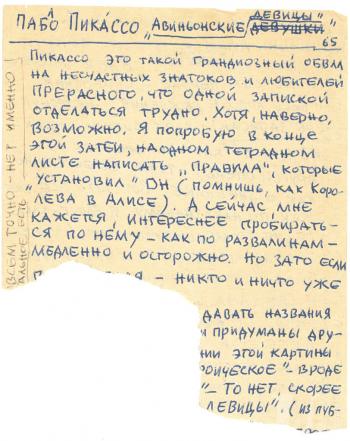 ДЕВИЦЫ"
ПАБЛО ПИКАССО „АВИНЬОНСКИЕ ДЕВУШКИ
65
ПИКАССО ЭТО ТАКОЙ ГРАНДИОЗНЫЙ ОБВАЛ
НА НЕСЧАСТНЫХ ЗНАТОКОВ И ЛЮБИТЕЛЕЙ
ПРЕРАСНОГО, ЧТО ОДНОЙ ЗАПИСКОЙ
ОТДЕЛАТЬСЯ ТРУДНО, ХОТЯ, НАВЕРНО,
ВОЗМОЖНО. Я ПОПРОБУЮ В КОНЦЕ
ЭТОЙ ЗАТЕИ, НА ОДНОМ ТЕТРАДНОМ
ЛИСТЕ НАПИСАТЬ „ПРАВИЛА", КОТОРЫЕ
„УСТАНОВИЛ" ОН (ПОМНИШЬ, КАК КОРО-
ЛЕВА В АЛИСЕ). А СЕЙЧАС, МНЕ
КАЖЕТСЯ, ИНТЕРЕСНЕЕ ПРОБИРАТЬ-
СЯ ПО НЕМУ – КАК ПО РАЗВАЛИНАМ –
МЕДЛЕННО И ОСТОРОЖНО. НО ЗАТО ЕСЛИ
– НИКТО И НИЧТО УЖЕ
ДАВАТЬ НАЗВАНИЯ
И ПРИДУМАНЫ ДРУ-
НИИ ЭТОЙ КАРТИНЫ
РОИЧЕСКОЕ" – ВРОДЕ
"– ТО НЕТ, СКОРЕЕ
ДЕВИЦЫ". (ИЗ ПУБ-
ВСЕМ ТОЧНО – НЕТ ИМЕННО
АЛЬНОЕ ЕСТЬ